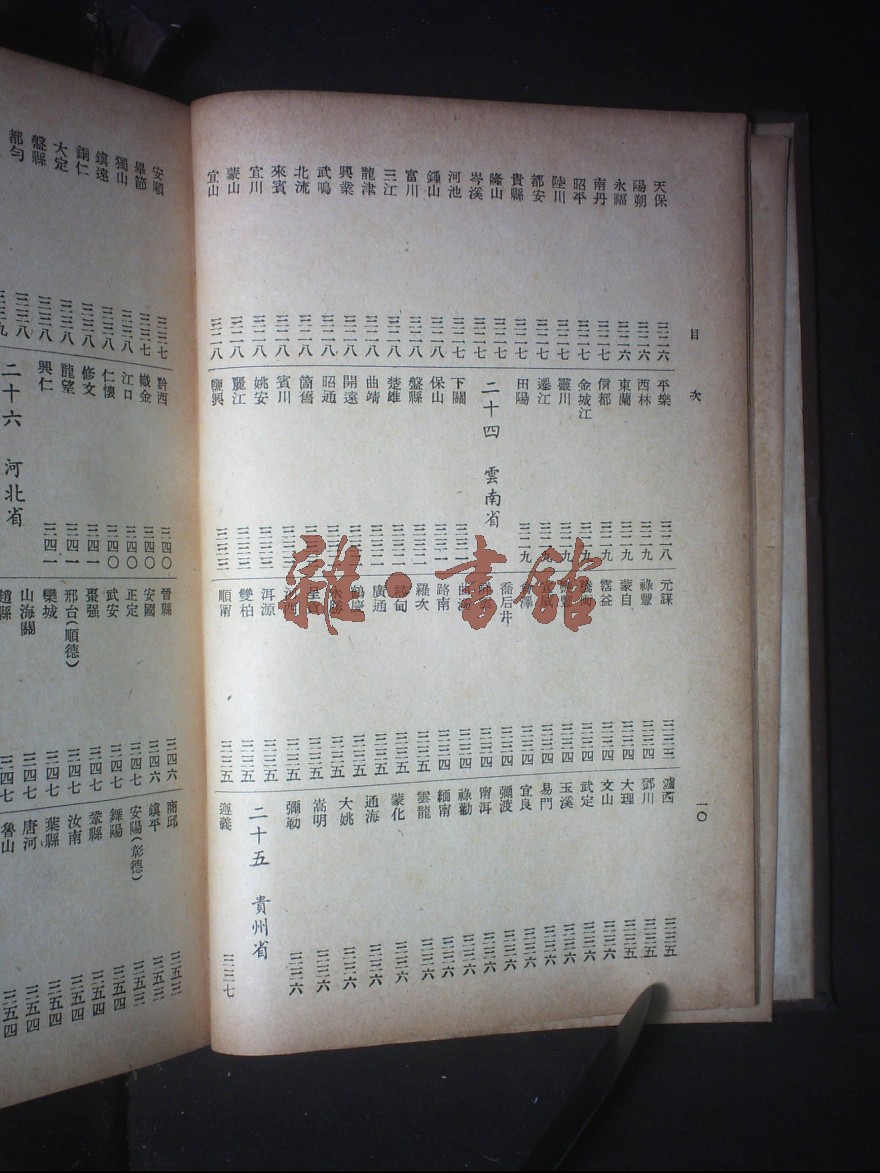 目次
一〇
天保 三二六
陽朔 三二六
永福 三二六
南丹 三二七
昭平 三二七
陸川 三二七
都安 三二七
貴縣 三二七
隆山 三二七
岑溪 三二七
河池 三二七
鍾山 三二八
富川 三二八
三江 三二八
龍津 三二八
興業 三二八
武鳴 三二八
北流 三二八
來賓 三二八
宜川 三二八
蒙山 三二八
宜山 三二八
平樂 三二八
西林 三二九
東蘭 三二九
信都 三二九
金城江 三二九
靈川 三二九
遷江 三二九
田陽 三二九
二十四 雲南省
下關 三三一
保山 三三一
盤縣
楚雄
曲靖
開遠
昭通
箇舊
賓川
姚安
麗江
鹽興
元謀
祿豐 三三四
蒙自 三三四
霑益 三三四
三三四
三三四
三三四
三三四
喬后井 三三四
三三四
三三四
路南 三三四
羅次 三三五
三三五
廣通 三三五
三三五
三三五
三三五
三三五
洱源 三三五
雙柏 三三五
順甯 三三五
瀘西 三三五
鄧川 三三五
大理 三三五
文山 三三六
武定 三三六
玉溪 三三六
易門 三三六
宜良 三三六
彌渡 三三六
甯洱 三三六
祿勸 三三六
緬甯 三三六
雲龍 三三六
蒙化 三三六
通海 三三六
大姚 三三六
嵩明 三三六
彌勒 三三六
二十五 貴州省
遵義 三三七
安順 三三七
畢節 三三七
獨山 三三八
鎮遠 三三八
銅仁 三三八
大定 三三八
盤縣 三三八
都勻 三三九
黔西 三四〇
織金 三四〇
江口 三四〇
仁懷 三四〇
修文 三四一
龍里 三四一
興仁 三四一
二十六 河北省
晉縣 三四六
安國 三四六
正定 三四七
武安 三四七
棗强 三四七
邢台(順德) 三四七
欒城 三四七
山海關 三四七
趙縣 三四七
商邱 三五三
鎮平 三五三
安陽(彰德) 三五三
舞陽 三五四
鞏縣 三五四
汝南 三五四
葉縣 三五四
唐河 三五四
魯山 三五四
雜·書館